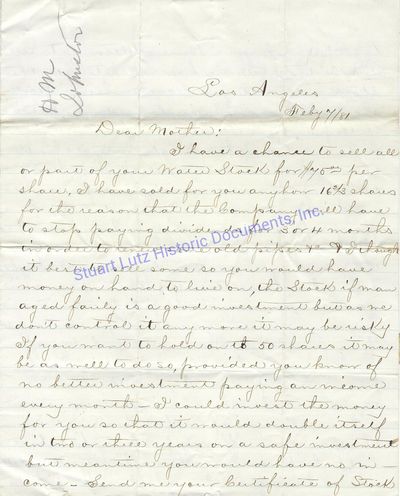 H M
Johnston
Los Angeles
Feby 7/81
Dear Mother:
I have a chance to sell all
or part of your Water Stock for $70 00 per
share, I have sold for you anyhow 16 2/3 shares
for the reason that the Company will have
to stop paying dividends for 3 or 4 months
in order to old pipes &c & I thought
it best to sell some so you would have
money on hand to live on, the Stock if man
aged fairly is a good investment but as we
dont control it any more it may be risky
If you want to hold on to 50 shares it may
be as well to do so, provided you know of
no better investment paying an income
every month – I could invest the money
for you so that it would double itself
in two or three years on a safe investment
but meantime you would have no in-
come – Send me your Certificate of Stock
Stuart Lutz Historic Documents, Inc.